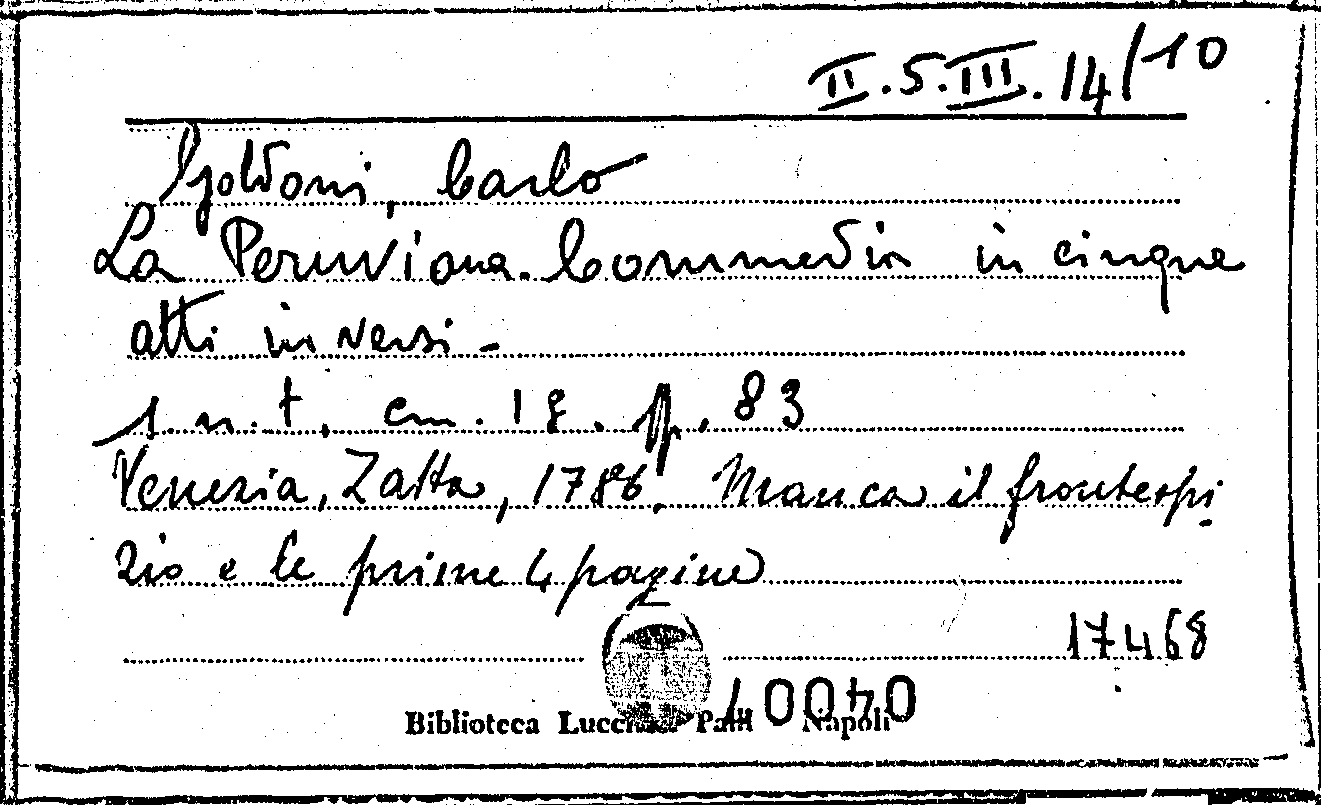 II.5.III.14/10
Goldoni, Carlo
La Peruviana. Commedia in cinque
atti in versi -
s. n. t. cm. 18. pp. 83
Venezia, Zatta, 1786. Manca il frontespi-
zio e le prime 4 pagine
17468
Biblioteca Lucchesi Palli Napoli